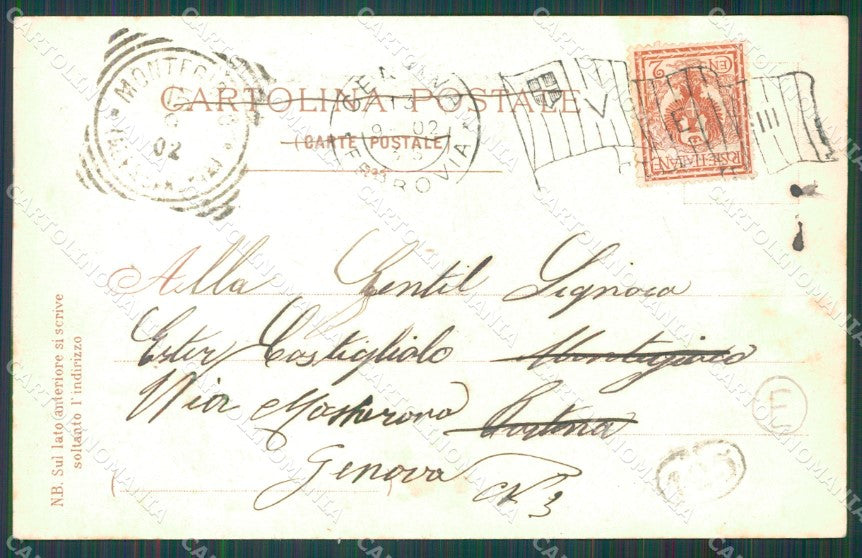 CARTOLINA POSTALE
(CARTE POSTALE)
02
GENOVA
02
FERROVIA
V
III
POSTE ITALIANE
CENT. 2
Alla Gentil Signora
Ester Costigliolo
Via Mascherona
Genova N 3
N.B. Sul lato anteriore si scrive
soltanto l'indirizzo
E
CARTOLINOMANIA